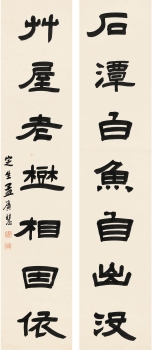 石潭白魚自出沒
艸屋老樾相因依
定生孟廣慧